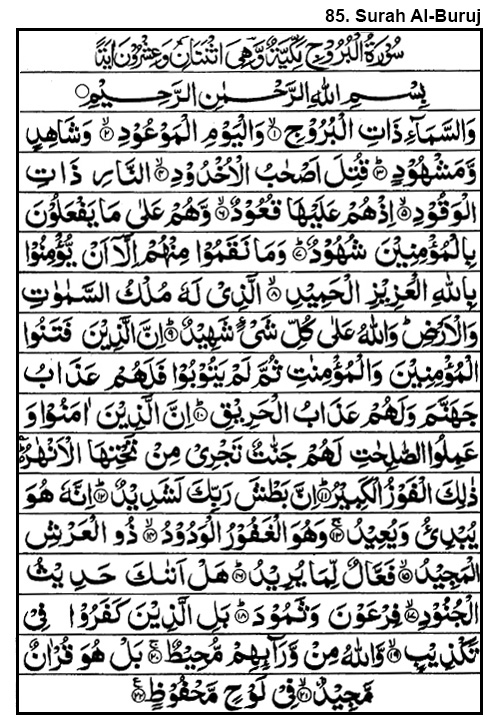 85. Surah Al-Buruj
سُوْرَةُ الْبُرُوْجِ مَكِّيَّةٌ وَّهِیَ اثْنَتَانِ وَعِشْرُوْنَ اٰیَةً
بِسْمِ اللّٰهِ الرَّحْمٰنِ الرَّحِیْمِ
وَالسَّمَآءِ ذَاتِ الْبُرُوْجِ ۙ﴿۱﴾ وَالْیَوْمِ الْمَوْعُوْدِ ۙ﴿۲﴾ وَشَاهِدٍ
وَّمَشْهُوْدٍ ؕ﴿۳﴾ قُتِلَ اَصْحٰبُ الْاُخْدُوْدِ ۙ﴿۴﴾ النَّارِ ذَاتِ
الْوَقُوْدِ ۙ﴿۵﴾ اِذْهُمْ عَلَیْهَا قُعُوْدٌ ۙ﴿۶﴾ وَّهُمْ عَلٰی مَا یَفْعَلُوْنَ
بِالْمُؤْمِنِیْنَ شُهُوْدٌ ؕ﴿۷﴾ وَمَا نَقَمُوْا مِنْهُمْ اِلَّاۤ اَنْ یُّؤْمِنُوْا
بِاللّٰهِ الْعَزِیْزِ الْحَمِیْدِ ۙ﴿۸﴾ الَّذِیْ لَهٗ مُلْكُ السَّمٰوٰتِ
وَالْاَرْضِ ؕ وَاللّٰهُ عَلٰی كُلِّ شَیْءٍ شَهِیْدٌ ؕ﴿۹﴾ اِنَّ الَّذِیْنَ فَتَنُوا
الْمُؤْمِنِیْنَ وَالْمُؤْمِنٰتِ ثُمَّ لَمْ یَتُوْبُوْا فَلَهُمْ عَذَابُ
جَهَنَّمَ وَلَهُمْ عَذَابُ الْحَرِیْقِ ؕ﴿۱۰﴾ اِنَّ الَّذِیْنَ اٰمَنُوْا وَ
عَمِلُوا الصّٰلِحٰتِ لَهُمْ جَنّٰتٌ تَجْرِیْ مِنْ تَحْتِهَا الْاَنْهٰرُ ؕ۬
ذٰلِكَ الْفَوْزُ الْكَبِیْرُ ؕ﴿۱۱﴾ اِنَّ بَطْشَ رَبِّكَ لَشَدِیْدٌ ؕ﴿۱۲﴾ اِنَّهٗ هُوَ
یُبْدِئُ وَیُعِیْدُ ۚ﴿۱۳﴾ وَهُوَ الْغَفُوْرُ الْوَدُوْدُ ۙ﴿۱۴﴾ ذُو الْعَرْشِ
الْمَجِیْدُ ۙ﴿۱۵﴾ فَعَّالٌ لِّمَا یُرِیْدُ ؕ﴿۱۶﴾ هَلْ اَتٰىكَ حَدِیْثُ
الْجُنُوْدِ ۙ﴿۱۷﴾ فِرْعَوْنَ وَثَمُوْدَ ؕ﴿۱۸﴾ بَلِ الَّذِیْنَ كَفَرُوْا فِیْ
تَكْذِیْبٍ ۙ﴿۱۹﴾ وَّاللّٰهُ مِنْ وَّرَآئِهِمْ مُّحِیْطٌ ۚ﴿۲۰﴾ بَلْ هُوَ قُرْاٰنٌ
مَّجِیْدٌ ۙ﴿۲۱﴾ فِیْ لَوْحٍ مَّحْفُوْظٍ ۠﴿۲۲﴾